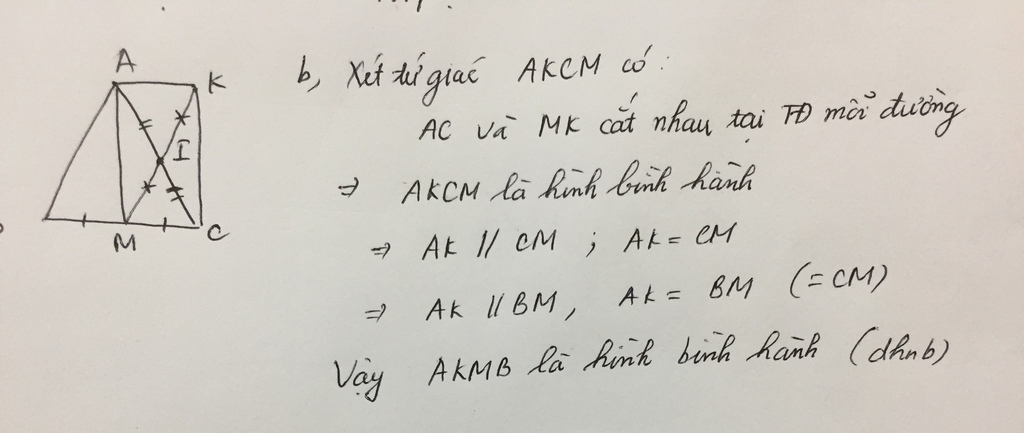 A
K
I
M
C
b, Xét tứ giác AKCM có:
AC và MK cắt nhau tại TĐ mỗi đường
⇒ AKCM là hình bình hành
⇒ AK // CM ; AK = CM
⇒ AK // BM, AK = BM (= CM)
Vậy AKMB là hình bình hành (dhnb)